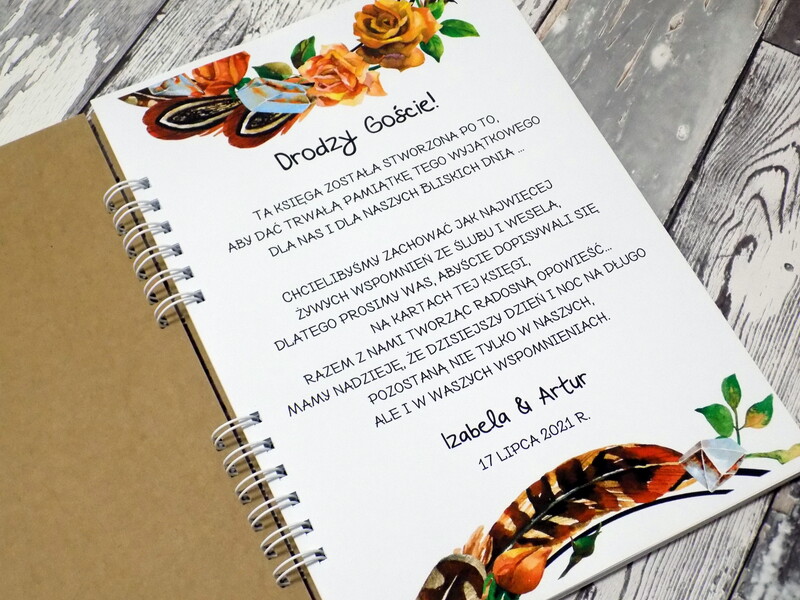 Drodzy Goście!
TA KSIĘGA ZOSTAŁA STWORZONA PO TO,
ABY DAĆ TRWAŁĄ PAMIĄTKĘ TEGO WYJĄTKOWEGO
DLA NAS I DLA NASZYCH BLISKICH DNIA ...
CHCIELIBYŚMY ZACHOWAĆ JAK NAJWIĘCEJ
ŻYWYCH WSPOMNIEŃ ZE ŚLUBU I WESELA,
DLATEGO PROSIMY WAS, ABYŚCIE DOPISYWALI SIĘ
NA KARTACH TEJ KSIĘGI,
RAZEM Z NAMI TWORZĄC RADOSNĄ OPOWIEŚĆ...
MAMY NADZIEJĘ, ŻE DZISIEJSZY DZIEŃ I NOC NA DŁUGO
POZOSTANĄ NIE TYLKO W NASZYCH,
ALE I W WASZYCH WSPOMNIENIACH.
Izabela & Artur
17 LIPCA 2021 R.